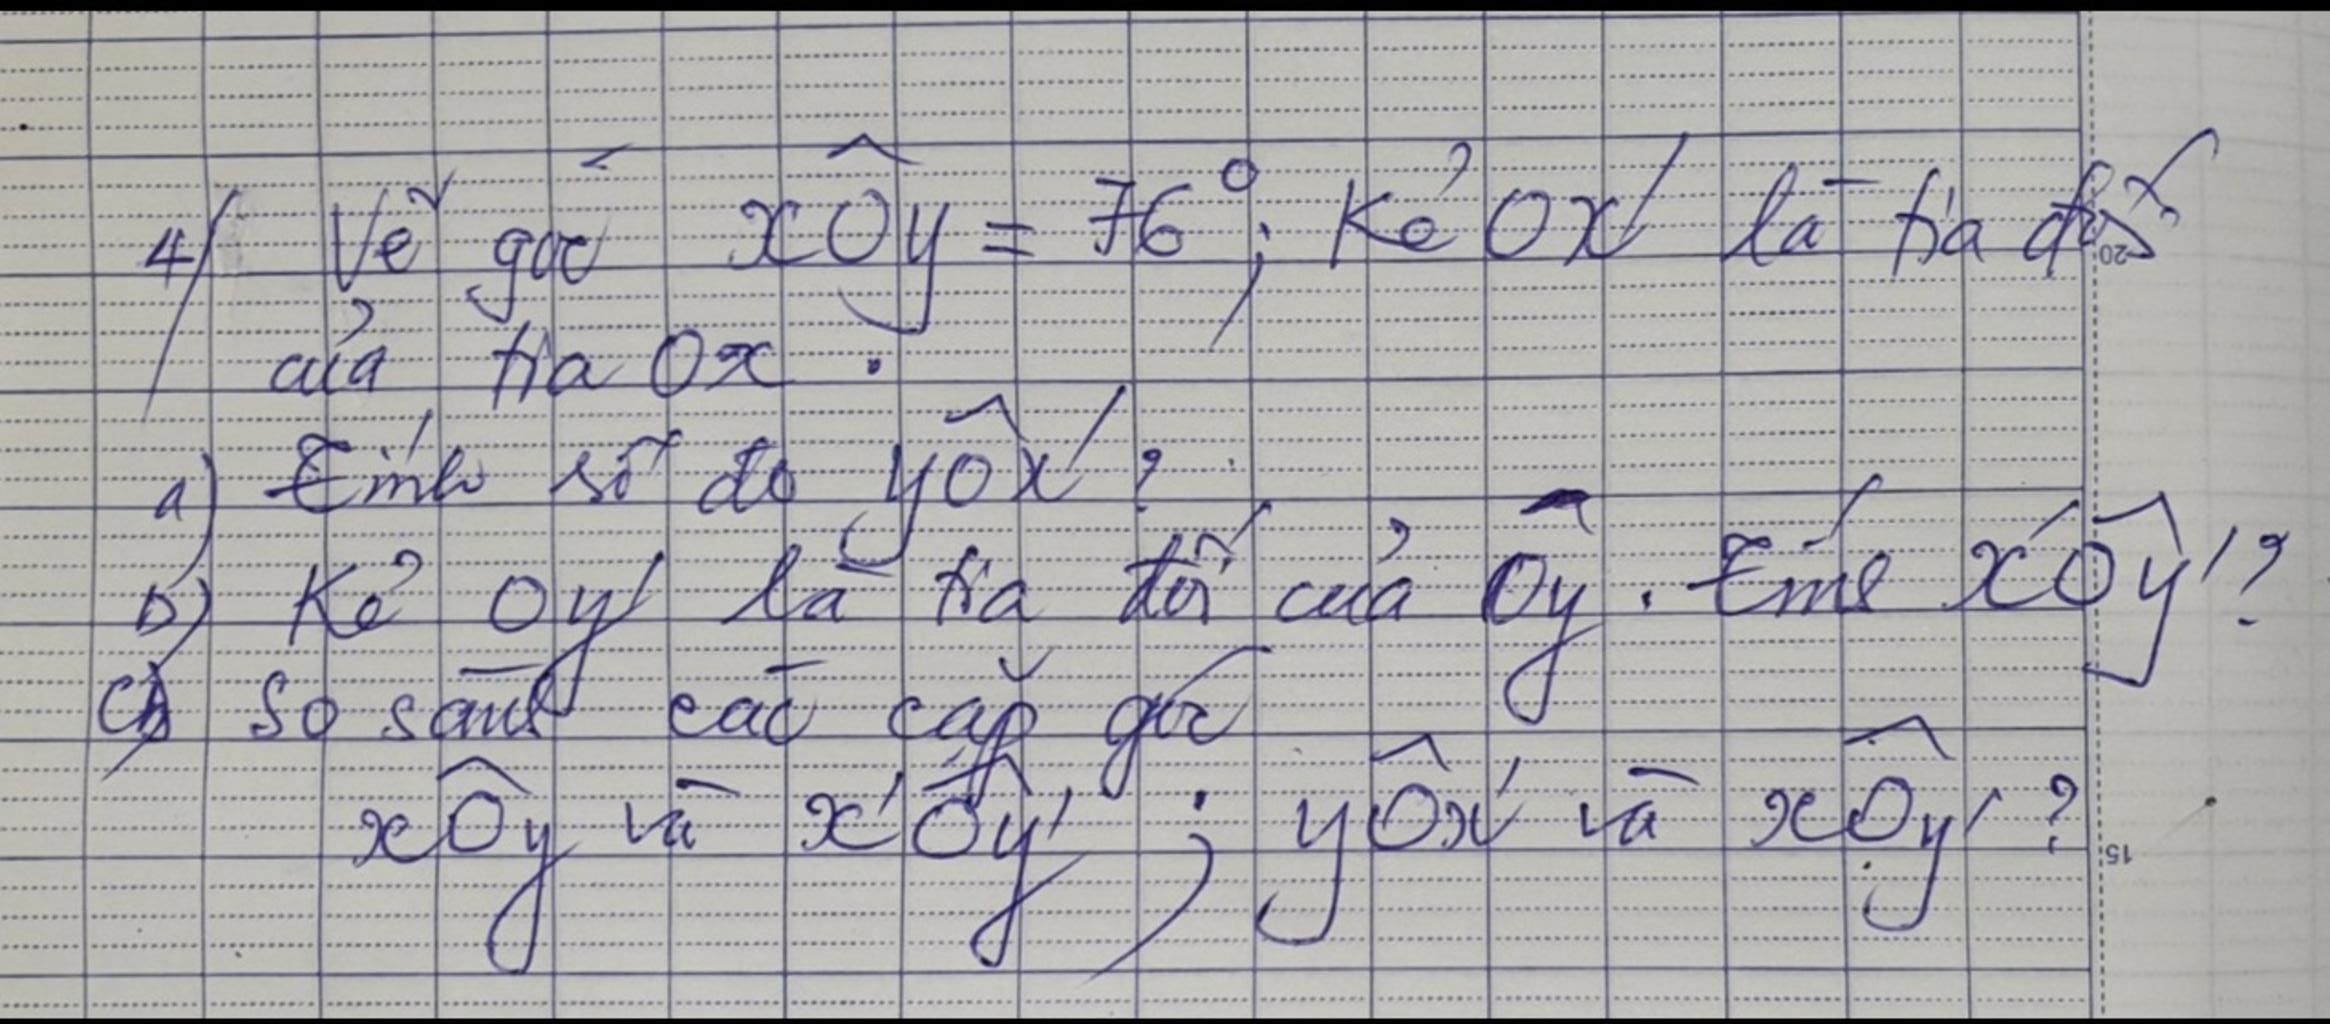 4/ Vẽ góc xÔy = 76°; Kẻ Ox' là tia đối
của tia Ox.
a) Tính số đo yÔx'?
b) Kẻ Oy' là tia đối của Oy. Tính x'Ôy'?
c) So sánh các cặp góc
xÔy và x'Ôy' ; yÔx' và xÔy' ?
20
15